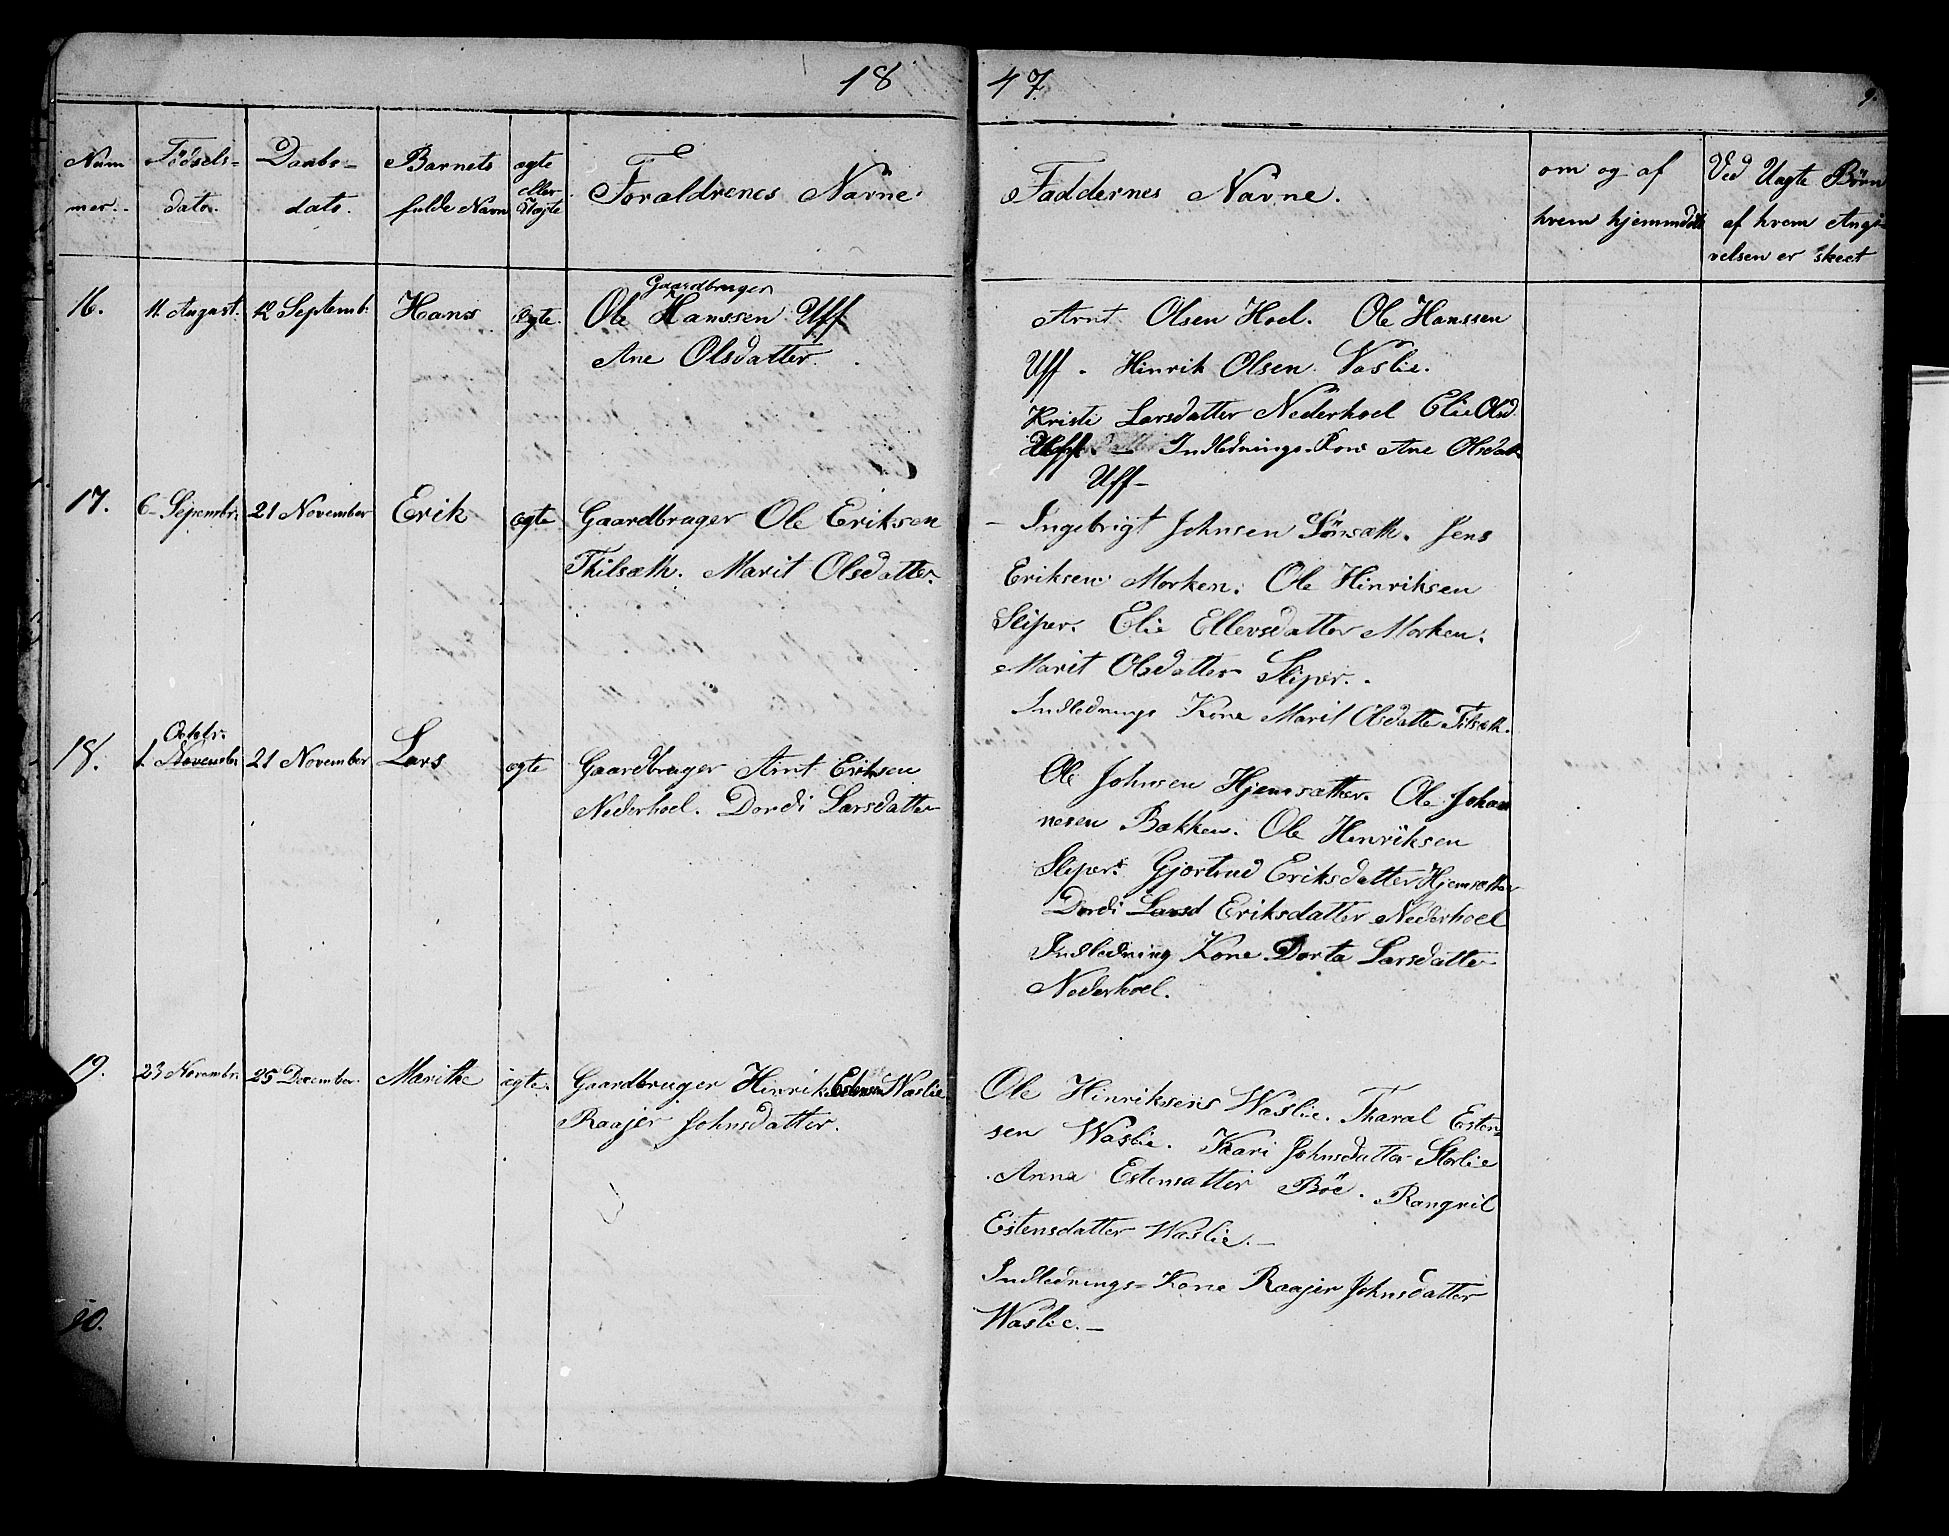 18 47
9.
Num
mer.
Födsels-
dato.
Daabs-
dato.
Barnets
fulde Navn
ægte
eller
Uægte
Forældrenes Navne.
Faddernes Navne.
om og af
hvem hjemmdøbt
Ved Uægte Börn
af hvem Angi-
velsen er skeet
16. 11 August. 12 Septemb: Hans ægte.
Gaardbruger
Ole Hanssen Uff
Ane Olsdatter.
Arnt Olsen Hoel. Ole Hanssen
Uff. Hinrik Olsen Vaslie.
Kristi Larsdatter Nederhoel Elie Olsd.
Uff. — Indlednings-Kone Ane Olsdatt
Uff—
17. 6 Sepembr. 21 November Erik ægte Gaardbruger Ole Eriksen
Thilsæth. Marit Olsdatter.
Ingebrigt Johnsen Sönsæth. Jens
Eriksen Morken. Ole Hinriksen
Sliper. Elie Ellevsdatter Morken.
Marit Olsdatter Sliper.
Indlednings Kone Marit Olsdatte Tilsæth.
Octobr:
18. 1. Novembr: 21 November Lars ægte Gaardbruger Arnt Eriksen
Nederhoel. Dordi Larsdatter
Ole Johnsen Hjemsætter. Ole Johan
nesen Bakken. Ole Henriksen
Sliper. Gjertrud Eriksdatter Hjemsætter
Dordi Larsd Eriksdatter Nederhoel
Indledning Kone Dorta Larsdatter
Nederhoel.
19. 23 Novembr: 25 December. Marithe ægte. Gaardbruger Hinrik Estensen Waslie
Raajer Johnsdatter.
Ole Hinriksens Waslie. Tharal Esten-
sen Waslie. Kari Johnsdatter Storlie
Anne Estensatter Böe. Rangnil
Estensdatter Waslie.—
Indlednings-Kone Raajer Johnsdatter
Waslie.—